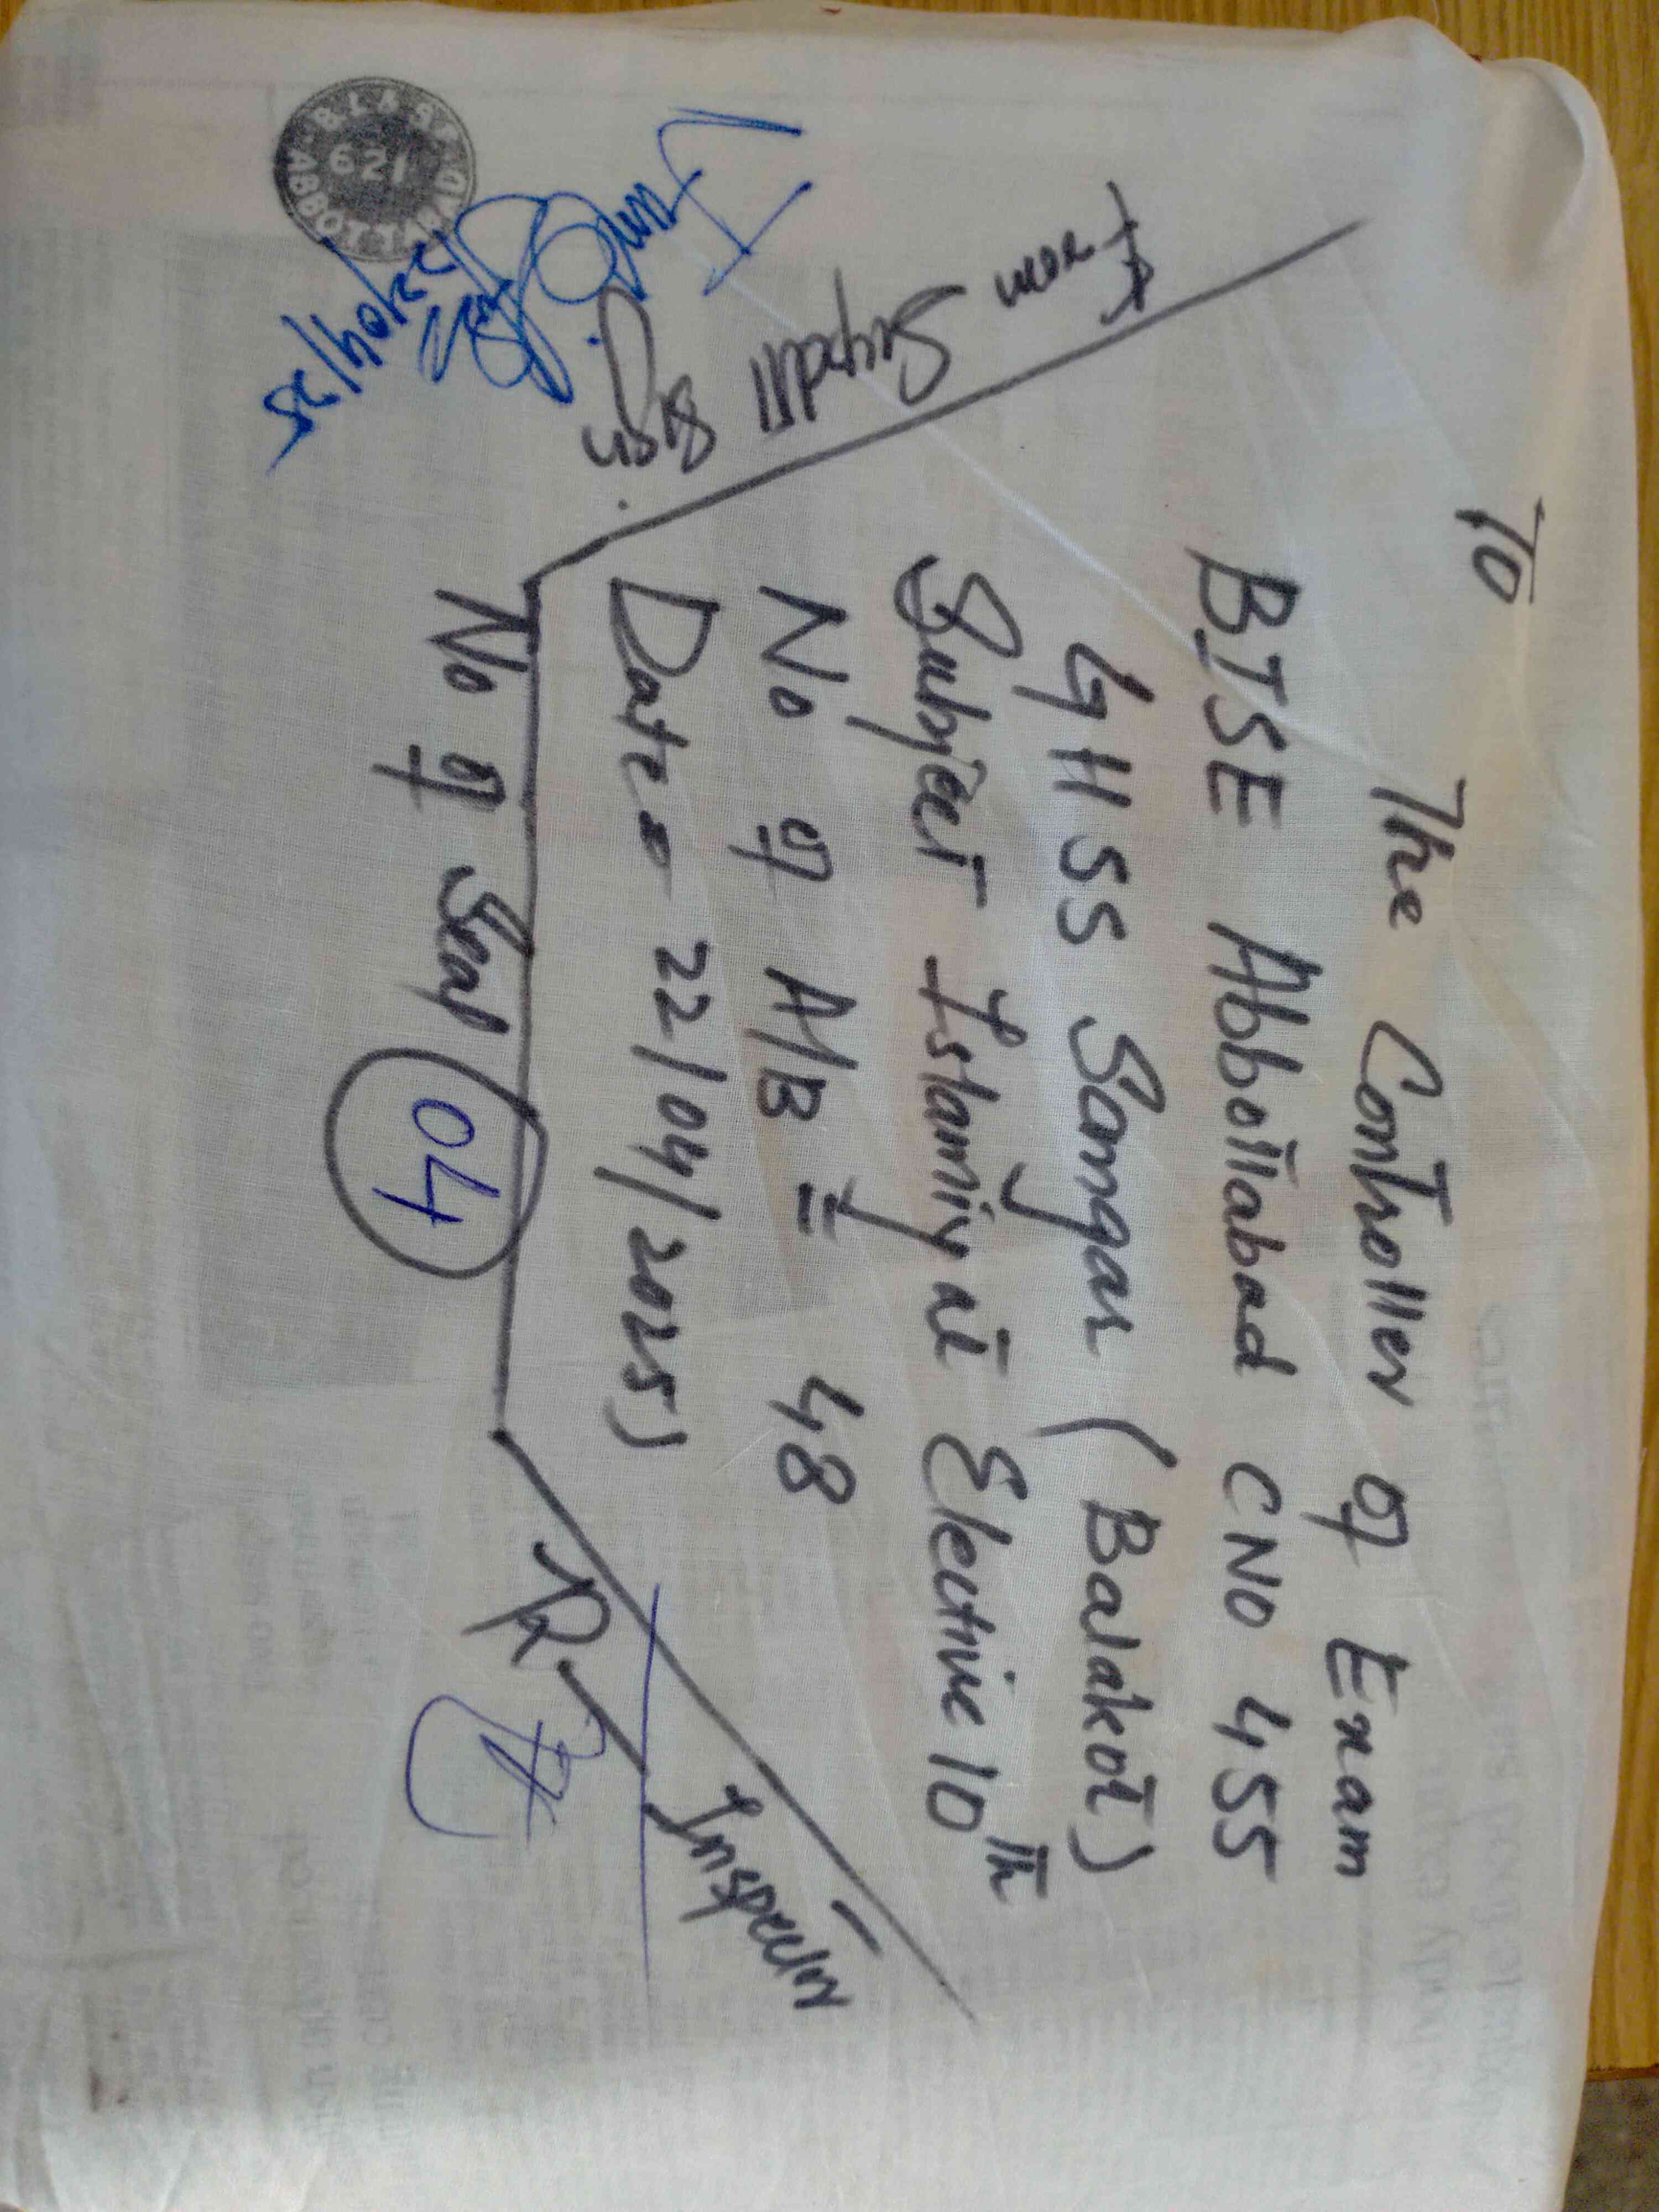 To
The Controller of Exam
BISE Abbottabad CNO 455
GHSS Sangar (Balakot)
Subject Islamiyat Elective 10th
No of A/B = 48
Date = 22/04/2025)
No of Seal 04
From
Supdtt
Sign
22/04/25
621
ABBOTTABAD
Inspector